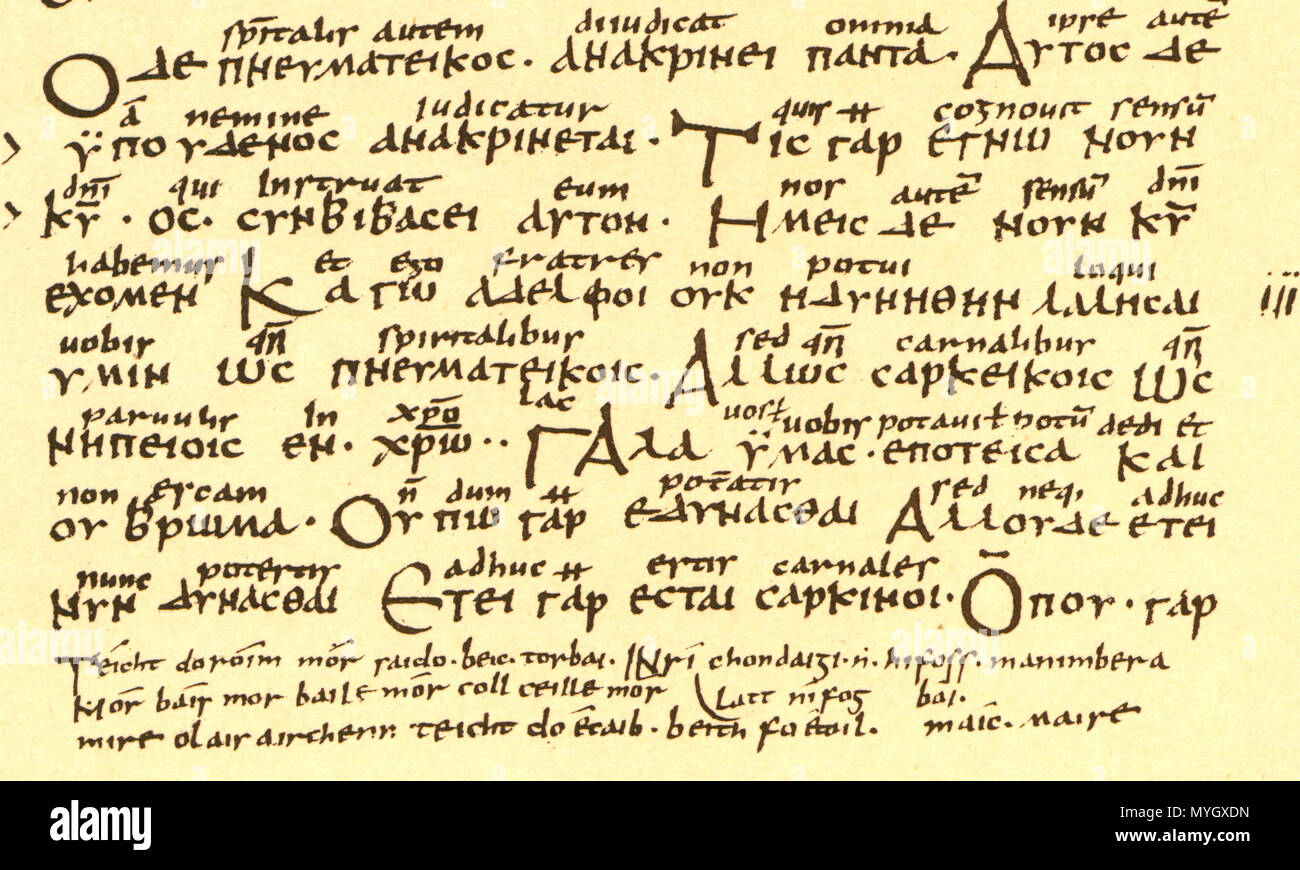 sp̄italis autem diiudicat omnia ipse autē
Ο ΔΕ ΠΝΕΥΜΑΤΕΙΚΟC · ΑΝΑΚΡΙΝΕΙ ΠΑΝΤΑ · ΑΥΤΟC ΔΕ
ā nemine iudicatur quis ⧺ cognouit sensū
ΫΠΟΥΔΕΝΟC ΑΝΑΚΡΙΝΕΤΑΙ · ΤΙC ΓΑΡ ΕΓΝΩ ΝΟΥΝ
dn̄i qui instruat eum nos autē sensū dn̄i
ΚῩ · ΟC · CΥΝΒΙΒΑCΕΙ ΑΥΤΟΝ · ΗΜΕΙC ΔΕ ΝΟΥΝ ΚῩ
habemus et ego fratres non potui loqui
ΕΧΟΜΕΝ ΚΑΓΩ ΑΔΕΛΦΟΙ ΟΥΚ ΗΔΥΝΗΘΗΝ ΛΑΛΗCΑΙ iii
uobis qn̄ spiritalibus sed qn̄ carnalibus qn̄
ΥΜΙΝ ΩC ΠΝΕΥΜΑΤΕΙΚΟΙC · ΑΛΛΩC CΑΡΚΕΙΚΟΙC ΩC
paruulis in xp̄o lac uos ł uobis potaui ł potū dedi et
ΝΗΠΕΙΟΙC ΕΝ · ΧΡ̄Ω ·· ΓΑΛΑ ΫΜΑC · ΕΠΟΤΕΙCΑ ΚΑΙ
non escam n̄ dum ⧺ potratis sed neqi adhuc
ΟΥ ΒΡΩΜΑ · ΟΥΠΩ ΓΑΡ ΕΔΥΝΑCΘΑΙ ΑΛΛΟΥΔΕ ΕΤΕΙ
nunc potestis adhuc ⧺ estis carnales
ΝΥΝ ΔΥΝΑCΘΑΙ ΕΤΕΙ ΓΑΡ ΕCΤΑΙ CΑΡΚΙΝΟΙ · ΟΠΟΥ · ΓΑΡ
Teicht doróim mór saido · beic · torbai · INrí chondaigi · n̄ · hifoss · manimbera
Mór báis mor baile mór coll ceille mór latt nífog bai ·
mire olais airchenn teicht do écaib · beith fo étoil · máic · maire
alamy
Image ID: MYGXDN
www.alamy.com